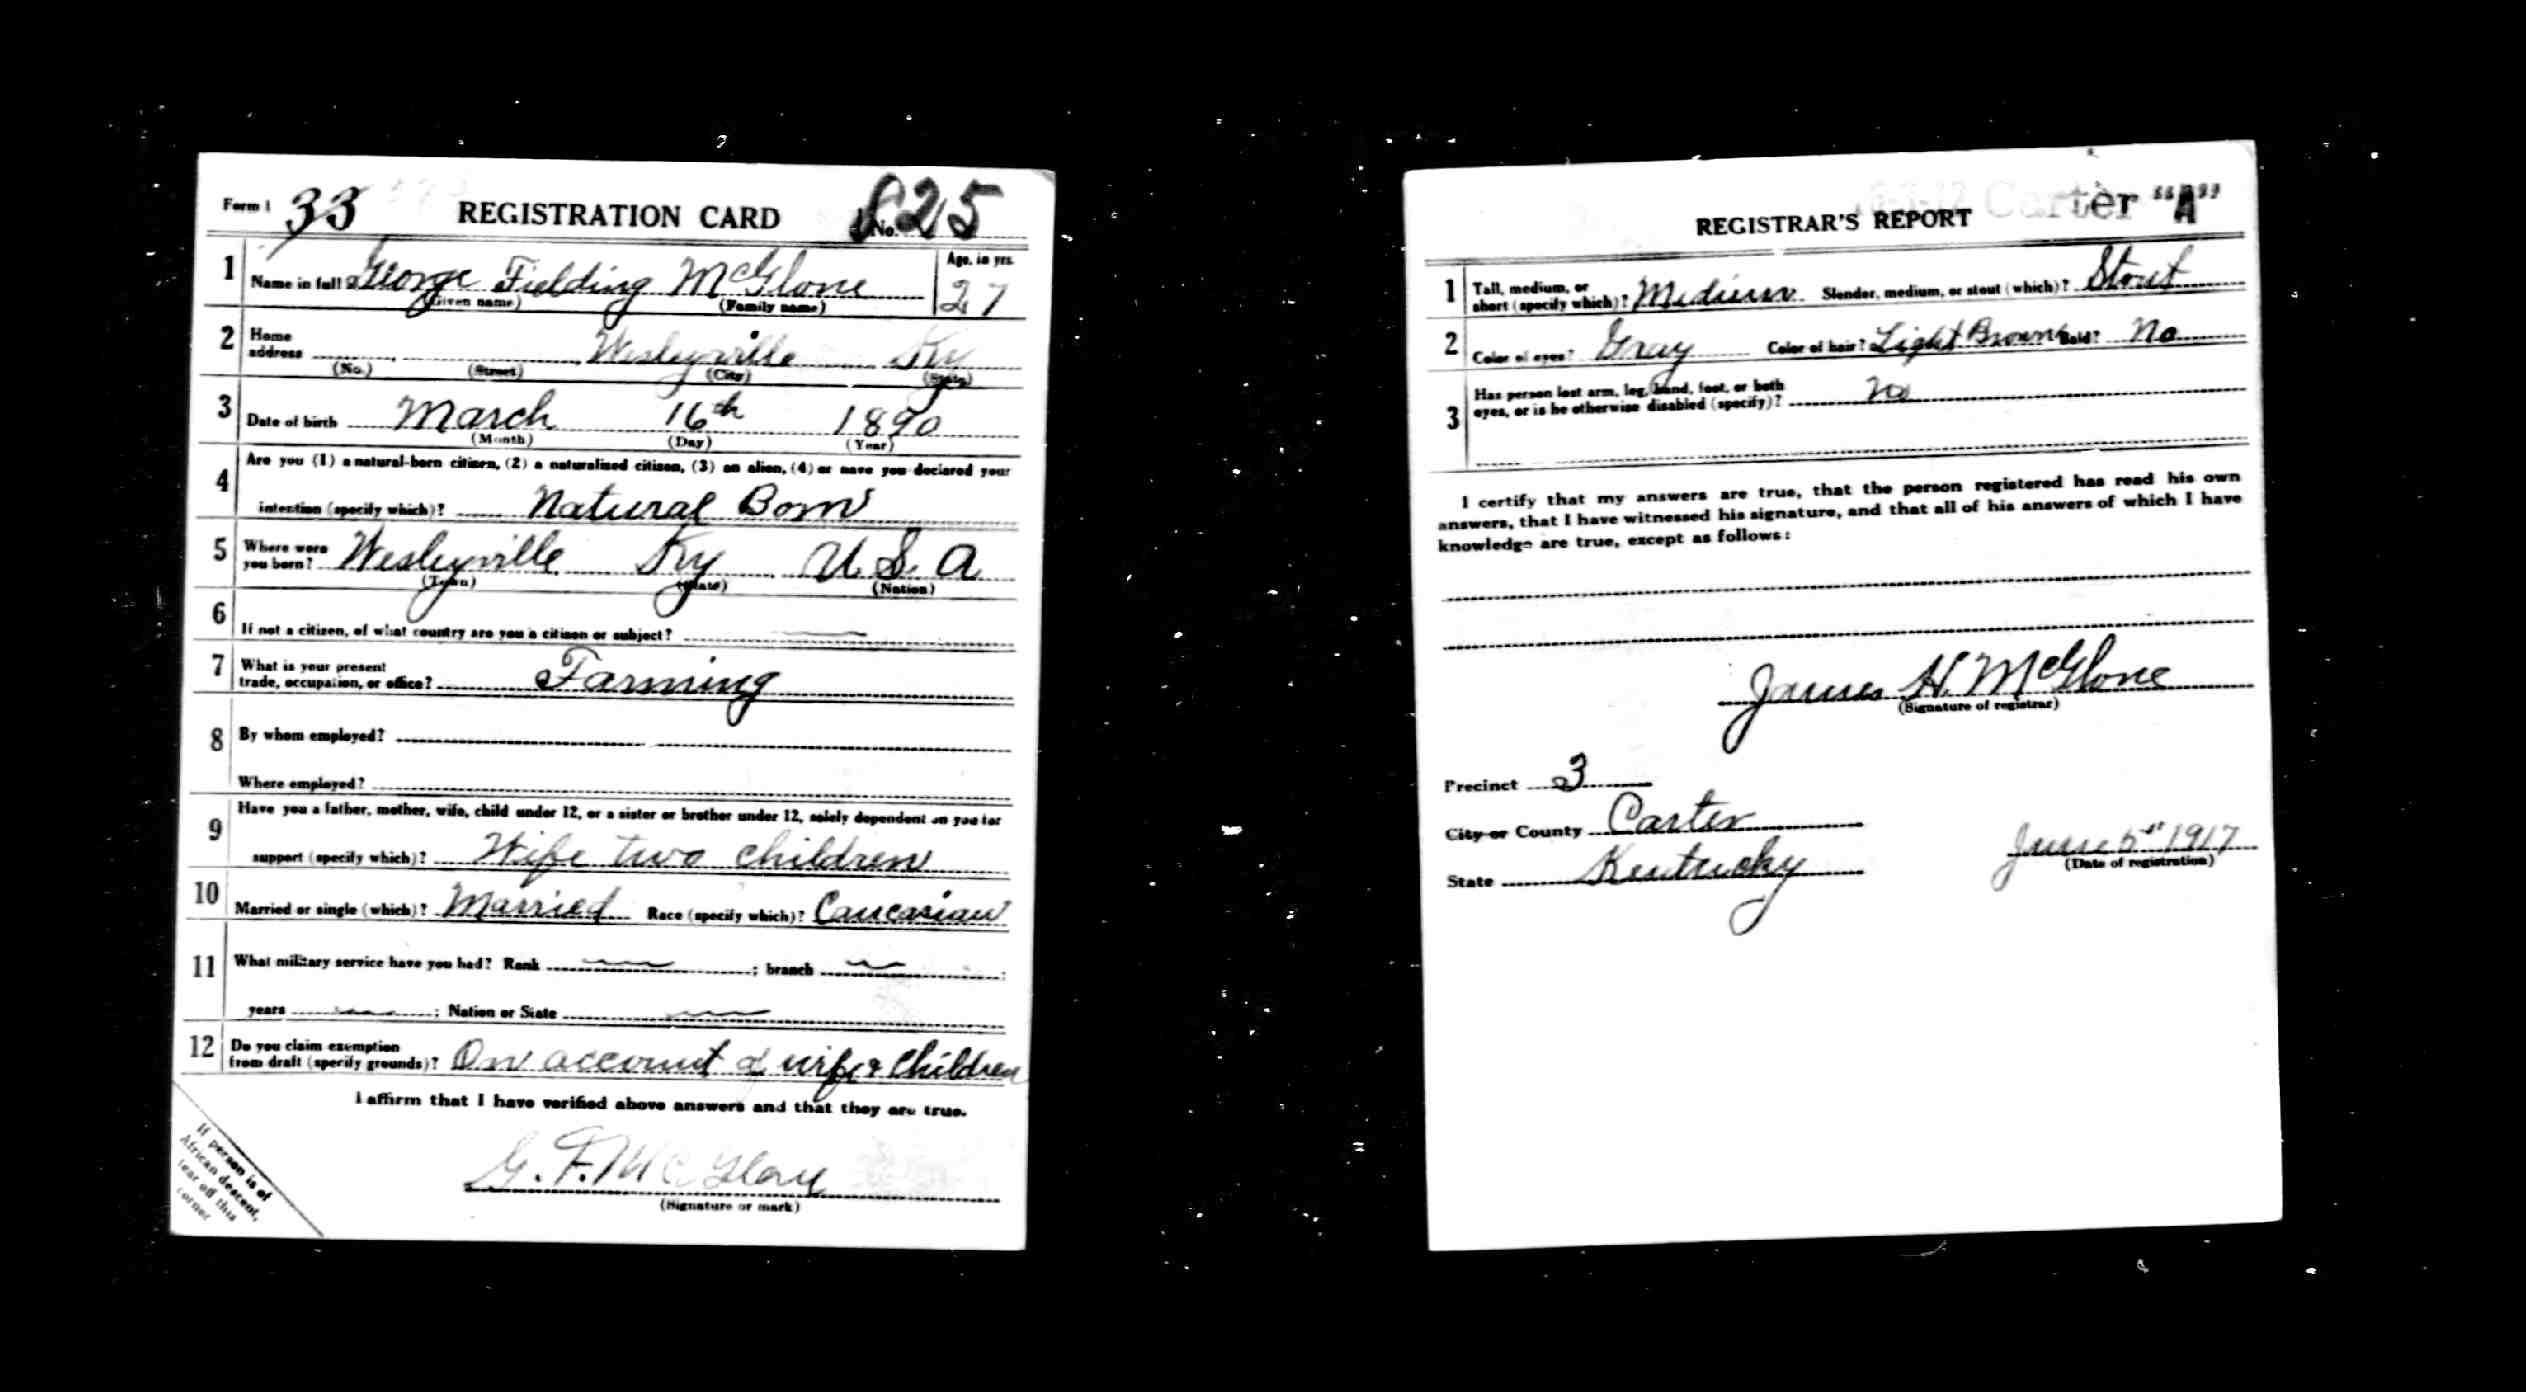 Form 1 33 REGISTRATION CARD No. 825
1 Name in full George Fielding McGlone Age, in yrs. 27
(Given name) (Family name)
2 Home address Wesleyville Ky
(No.) (Street) (City) (State)
3 Date of birth March 16th 1890
(Month) (Day) (Year)
4 Are you (1) a natural-born citizen, (2) a naturalized citizen, (3) an alien, (4) or have you declared your
intention (specify which)? Natural Born
5 Where were you born? Wesleyville Ky U.S.A
(Town) (State) (Nation)
6 If not a citizen, of what country are you a citizen or subject?
7 What is your present
trade, occupation, or office? Farming
8 By whom employed?
Where employed?
9 Have you a father, mother, wife, child under 12, or a sister or brother under 12, solely dependent on you for
support (specify which)? Wife two children
10 Married or single (which)? Married Race (specify which)? Caucasian
11 What military service have you had? Rank ; branch ;
years ; Nation or State
12 Do you claim exemption
from draft (specify grounds)? On account of wife & Children
I affirm that I have verified above answers and that they are true.
G. F. McGlone
(Signature or mark)
If person is of
African descent,
tear off this
corner
16-3-17 Carter "A"
REGISTRAR'S REPORT
1 Tall, medium, or
short (specify which)? Medium Slender, medium, or stout (which)? Stout
2 Color of eyes? Gray Color of hair? Light Brown Bald? No
3 Has person lost arm, leg, hand, foot, or both
eyes, or is he otherwise disabled (specify)? No
I certify that my answers are true, that the person registered has read his own
answers, that I have witnessed his signature, and that all of his answers of which I have
knowledge are true, except as follows:
James H. McGlone
(Signature of registrar)
Precinct 3
City or County Carter
State Kentucky
June 5th 1917
(Date of registration)